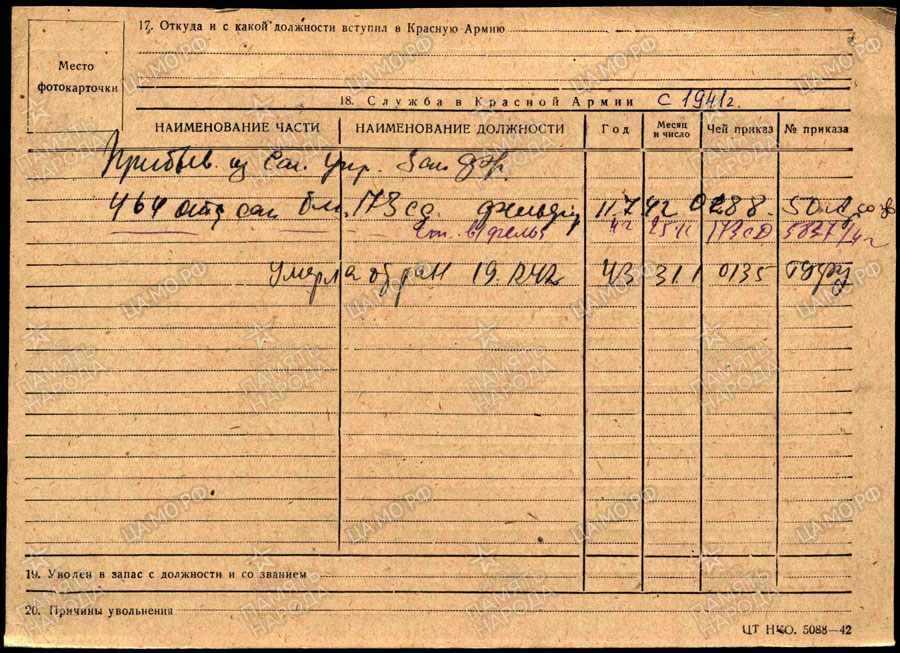 17. Откуда и с какой должности вступил в Красную Армию
Место
фотокарточки
18. Служба в Красной Армии с 1941 г.
НАИМЕНОВАНИЕ ЧАСТИ НАИМЕНОВАНИЕ ДОЛЖНОСТИ Год Месяц и число Чей приказ № приказа
Прибыв. из Сан. Упр. Зап. фр.
464 отд сан бат. 173 сд 11.7 42 0288
42 25 173сд
Умерла от ран 19. 42 43 31.1 0135
19. Уволен в запас с должности и со званием
20. Причины увольнения
ЦТ НКО. 5088—42
ПАМЯТЬ НАРОДА
ЦАМО.РФ